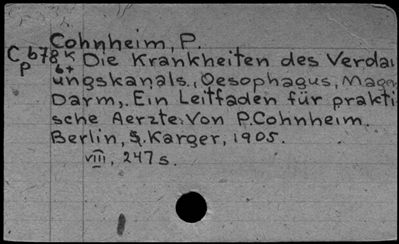 Cohnheim, P.
Cb78k Die Krankheiten des Verdau
P 6+ ungskanals., Oesophagus, Mage
Darm,. Ein Leitfaden für prakti
sche Aerzte. Von P. Cohnheim.
Berlin, S. Karger, 1905.
VIII, 247 s.